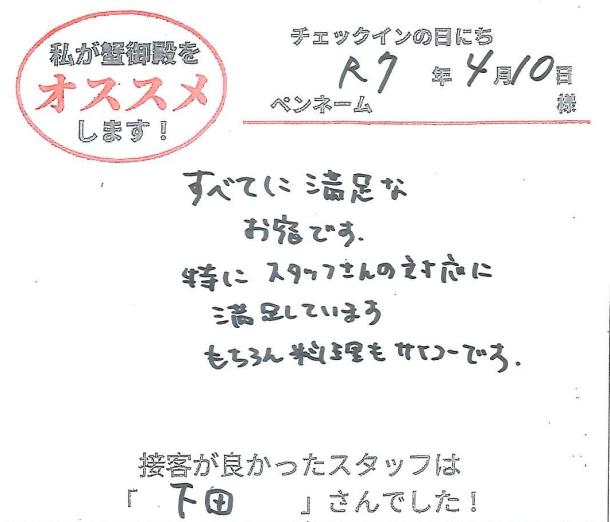 私が蟹御殿を
オススメ
します!
チェックインの日にち
R7 年 4月10日
ペンネーム 様
すべてに満足な
お宿です.
特に スタッフさんの対応に
満足しています
もちろん料理もサイコーです.
接客が良かったスタッフは
「 下田 」さんでした!